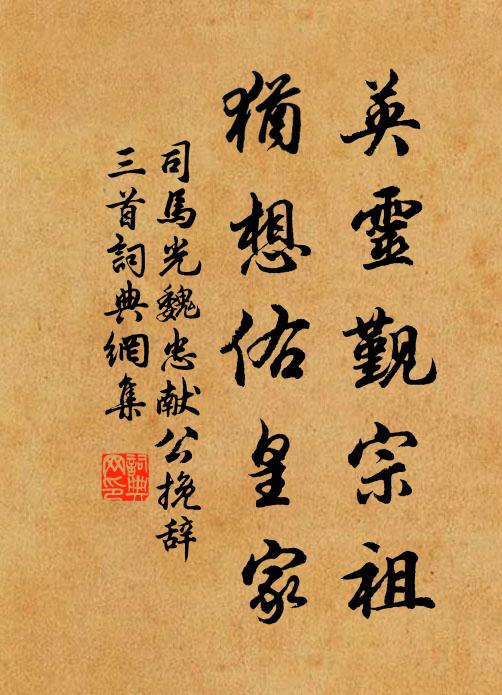 英靈覲宗祖
猶想佑皇家
司馬光魏忠献公挽辞
三首詞典網集
詞典
网印